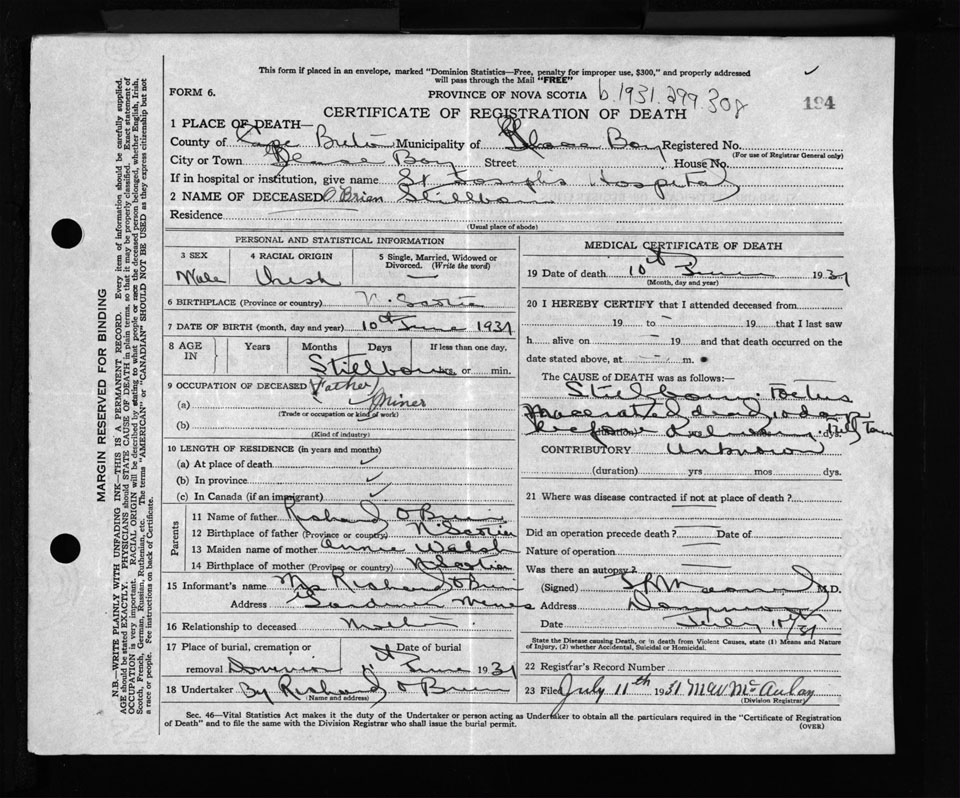 This form if placed in an envelope, marked "Dominion Statistics—Free, penalty for improper use, $300," and properly addressed
will pass through the Mail "FREE"
FORM 6.
PROVINCE OF NOVA SCOTIA b.1931.299.308
194
CERTIFICATE OF REGISTRATION OF DEATH
1 PLACE OF DEATH—
County of Cape Breton Municipality of Glace Bay Registered No.
(For use of Registrar General only)
City or Town Glace Bay Street House No.
If in hospital or institution, give name St Joseph's Hospital
2 NAME OF DECEASED O'Brien Stillborn
Residence
(Usual place of abode)
PERSONAL AND STATISTICAL INFORMATION
3 SEX 4 RACIAL ORIGIN 5 Single, Married, Widowed or Divorced. (Write the word)
Male Irish —
6 BIRTHPLACE (Province or country) N. Scotia
7 DATE OF BIRTH (month, day and year) 10th June 1931
8 AGE IN Years Months Days If less than one day,
Stillborn hrs. or min.
9 OCCUPATION OF DECEASED Father
(a) Miner
(Trade or occupation or kind of work)
(b)
(Kind of industry)
10 LENGTH OF RESIDENCE (in years and months)
(a) At place of death ✓
(b) In province ✓
(c) In Canada (if an immigrant) ✓
Parents
11 Name of father Richard O'Brien
12 Birthplace of father (Province or country) N. Scotia
13 Maiden name of mother Annie Walsh
14 Birthplace of mother (Province or country) N Scotia
15 Informant's name Mrs Richard O'Brien
Address Gardiner Mines
16 Relationship to deceased Mother
17 Place of burial, cremation or removal Dominion Date of burial 11th June 1931
18 Undertaker By Richard O'Brien
(Name and address)
MEDICAL CERTIFICATE OF DEATH
19 Date of death 10th June 1931
(Month, day and year)
20 I HEREBY CERTIFY that I attended deceased from
19 to — 19 that I last saw
h alive on — 19 and that death occurred on the
date stated above, at — m.
The CAUSE OF DEATH was as follows:—
Stillborn. Foetus
macerated dead 10 days
before delivery. Full Term
(duration) dys.
CONTRIBUTORY Unknown
(duration) yrs mos dys.
21 Where was disease contracted if not at place of death?
Did an operation precede death? Date of
Nature of operation
Was there an autopsy?
(Signed) M.D.
Address
Date July 10th/31
State the Disease causing Death, or in death from Violent Causes, state (1) Means and Nature
of Injury, (2) whether Accidental, Suicidal or Homicidal.
22 Registrar's Record Number
23 Filed July 11th 1931 M W McAulay
(Division Registrar)
Sec. 46—Vital Statistics Act makes it the duty of the Undertaker or person acting as Undertaker to obtain all the particulars required in the "Certificate of Registration
of Death" and to file the same with the Division Registrar who shall issue the burial permit.
(OVER)
MARGIN RESERVED FOR BINDING
N.B.—WRITE PLAINLY WITH UNFADING INK—THIS IS A PERMANENT RECORD. Every item of information should be carefully supplied.
AGE should be stated EXACTLY. PHYSICIANS should STATE CAUSE OF DEATH in plain terms, so that it may be properly classified. Exact statement of
OCCUPATION is very important. RACIAL ORIGIN will be described by stating to what people or race the deceased person belonged, whether English, Irish,
Scotch, French, German, Russian, Ruthenian, etc. The terms "AMERICAN" or "CANADIAN" SHOULD NOT BE USED as they express citizenship but not
a race or people. See instructions on back of Certificate.